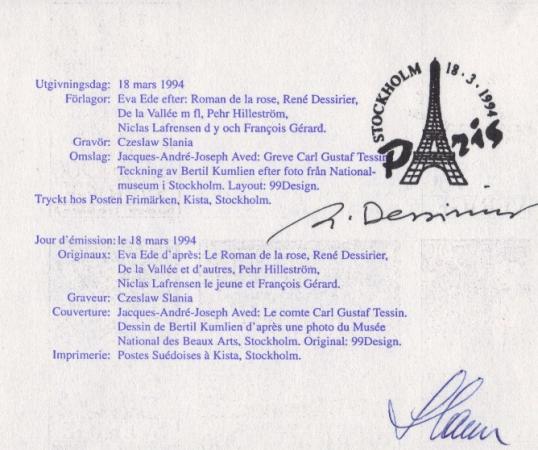 Utgivningsdag: 18 mars 1994
Förlagor: Eva Ede efter: Roman de la rose, René Dessirier,
De la Vallée m fl, Pehr Hilleström,
Niclas Lafrensen d y och François Gérard.
Gravör: Czeslaw Slania
Omslag: Jacques-André-Joseph Aved: Greve Carl Gustaf Tessin
Teckning av Bertil Kumlien efter foto från National-
museum i Stockholm. Layout: 99Design.
Tryckt hos Posten Frimärken, Kista, Stockholm.
STOCKHOLM 18·3·1994
Paris
R. Dessirier
Jour d'émission: le 18 mars 1994
Originaux: Eva Ede d'après: Le Roman de la rose, René Dessirier,
De la Vallée et d'autres, Pehr Hilleström,
Niclas Lafrensen le jeune et François Gérard.
Graveur: Czeslaw Slania
Couverture: Jacques-André-Joseph Aved: Le comte Carl Gustaf Tessin.
Dessin de Bertil Kumlien d'après une photo du Musée
National des Beaux Arts, Stockholm. Original: 99Design.
Imprimerie: Postes Suédoises à Kista, Stockholm.
Slania